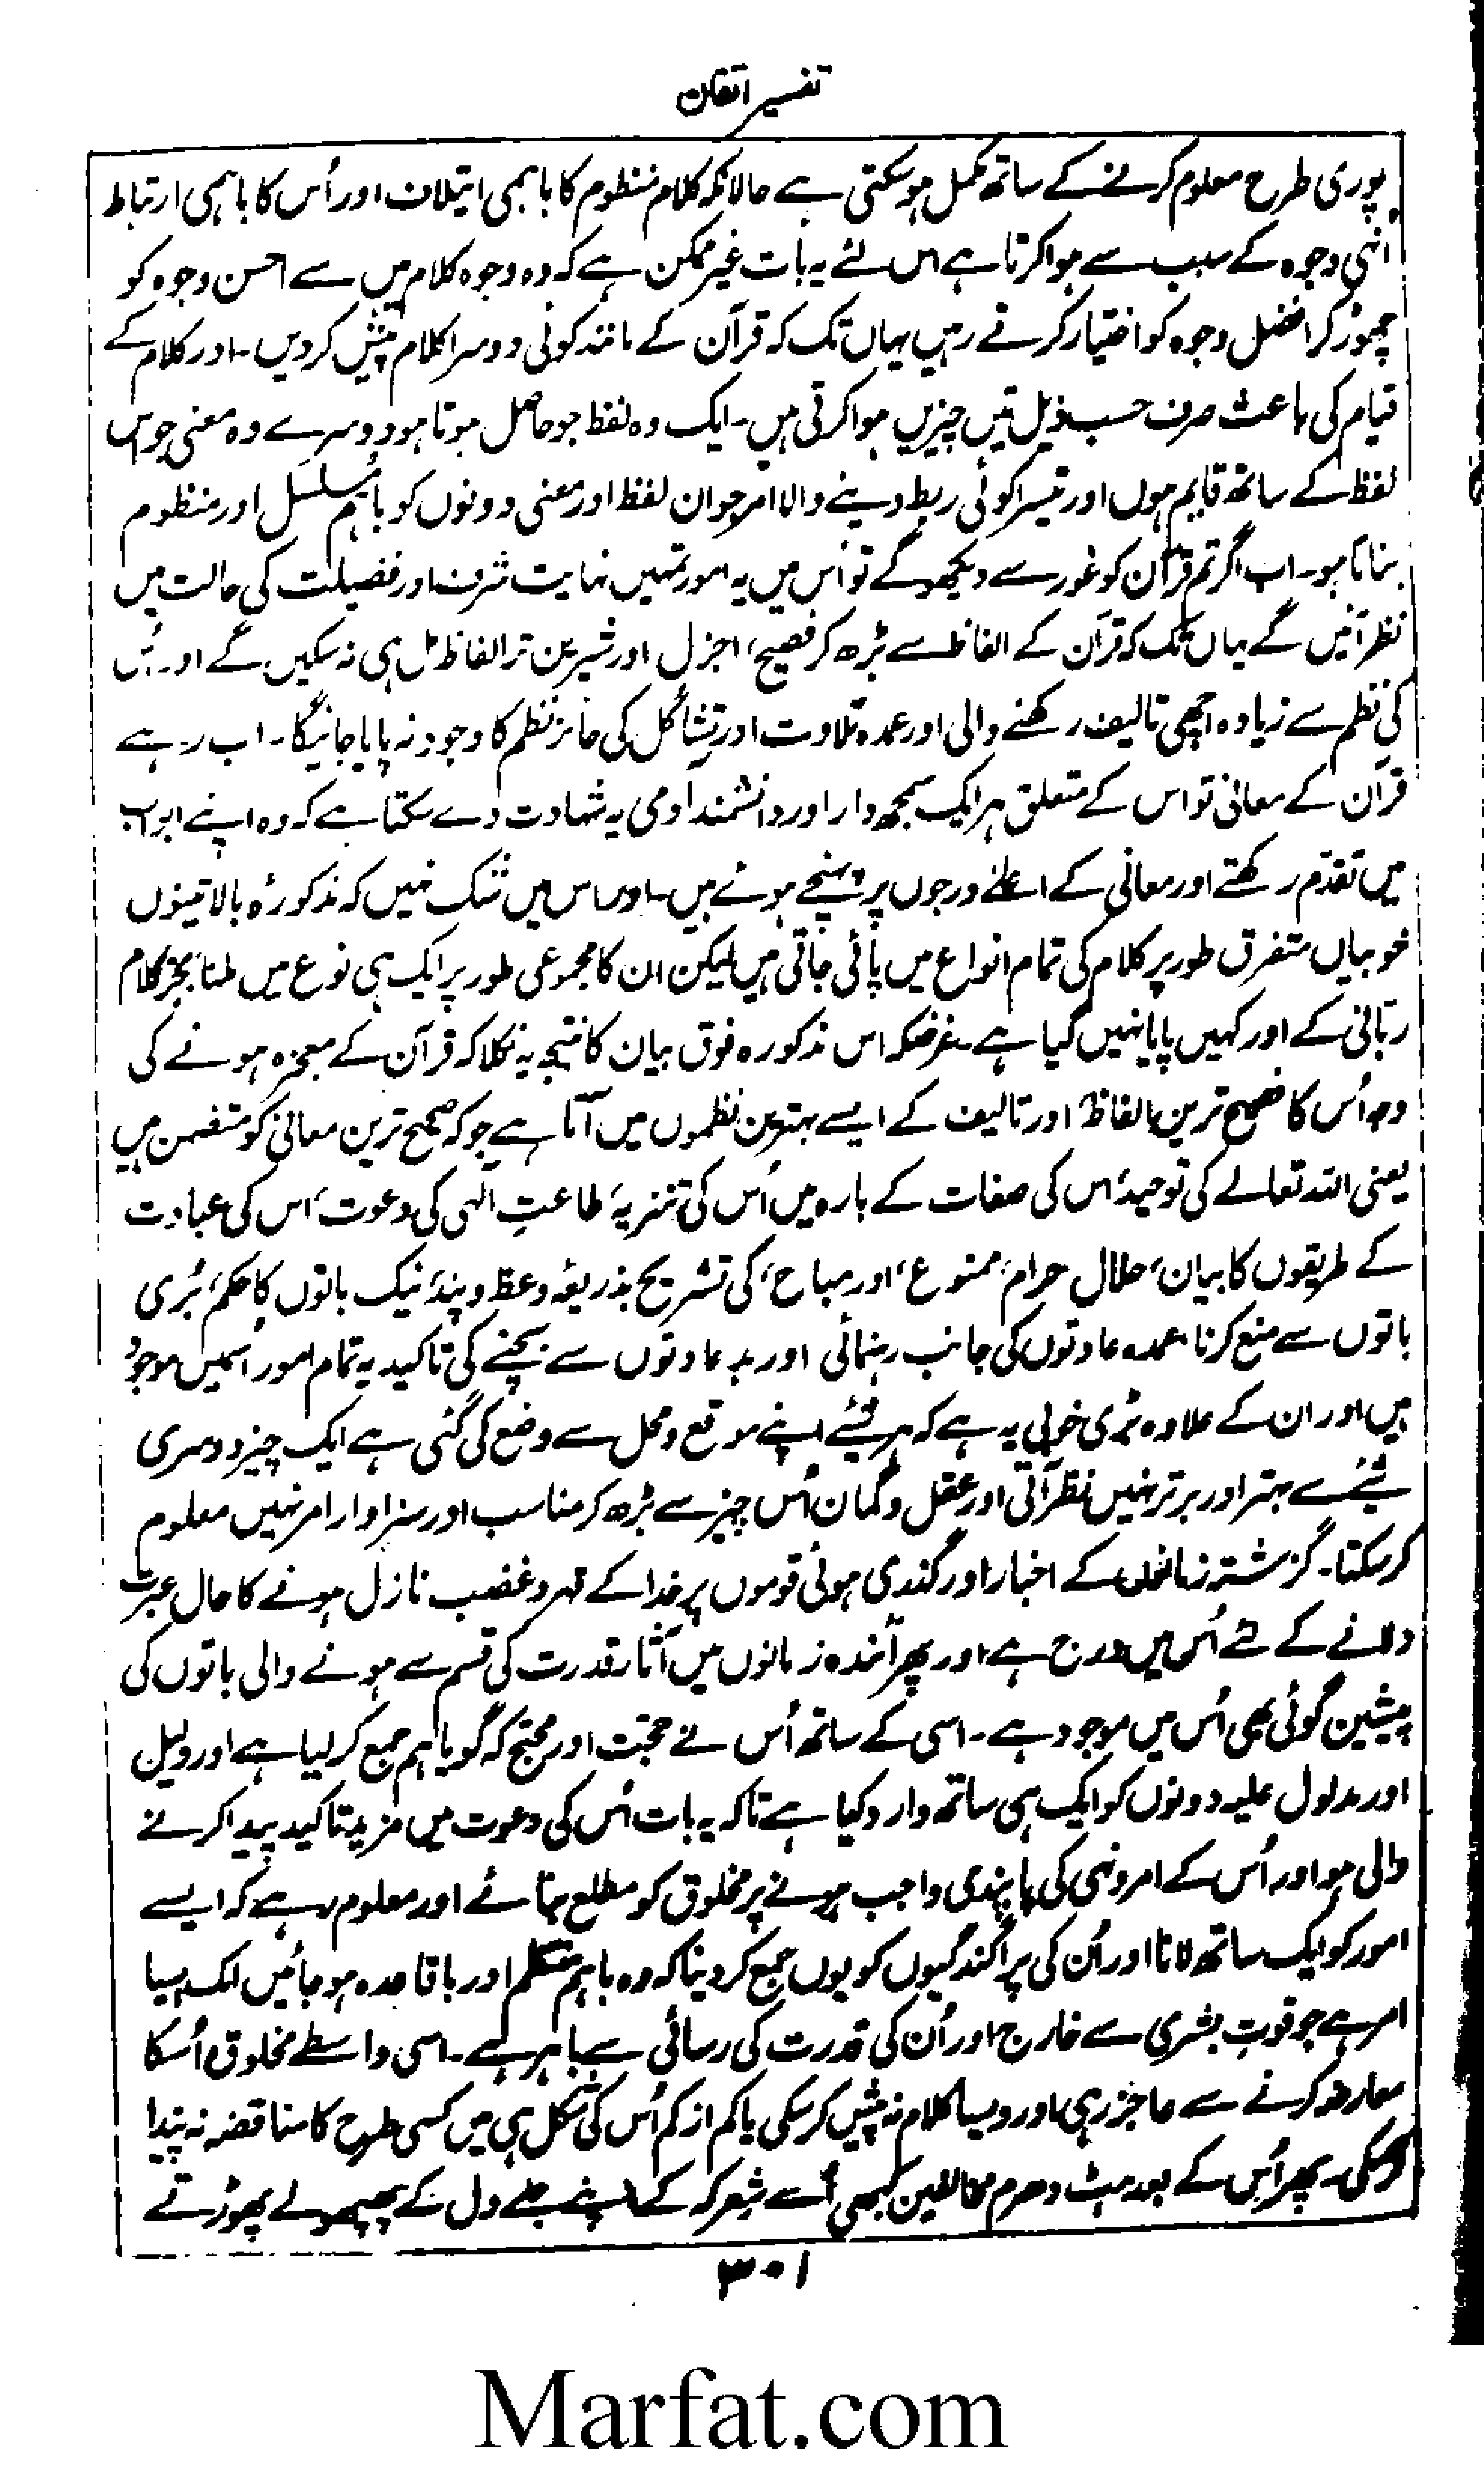 تفسیر اتقان
پوری طرح معلوم کرنے کے ساتھ مکمل ہو سکتی ہے حالانکہ کلام منظوم کا باہمی ایتلاف اور اُس کا باہمی ارتباط
انہی وجوہ کے سبب سے ہوا کرتا ہے اس لئے یہ بات غیر ممکن ہے کہ وہ وجوہ کلام میں سے احسن وجوہ کو
چھوڑ کر افضل وجوہ کو اختیار کرتے رہیں یہاں تک کہ قرآن کے مانند کوئی دوسرا کلام پیش کر دیں۔ اور کلام کے
قیام کی باعث صرف حسب ذیل تین چیزیں ہوا کرتی ہیں۔ ایک وہ لفظ جو حاصل ہوتا ہو دوسرے وہ معنی جو اس
لفظ کے ساتھ قایم ہوں اور تیسرا کوئی ربط دینے والا امر جو ان لفظ اور معنی دونوں کو باہم مُسلسل اور منظوم
بناتا ہو۔ اب اگر تم قرآن کو غور سے دیکھو گے تو اُس میں یہ امور تمہیں نہایت شرف اور فضیلت کی حالت میں
نظر آئیں گے یہاں تک کہ قرآن کے الفاظ سے بڑھ کر فصیح، اجزل اور شیریں تر الفاظ مل ہی نہ سکیں گے اور اُس
کی نظم سے زیادہ اچھی تالیف رکھنے والی اور عمدہ تلاوت اور تشاکل کی حائز نظم کا وجود نہ پایا جائیگا۔ اب رہے
قرآن کے معانی تو اس کے متعلق ہر ایک سمجھ دار اور دانشمند آدمی یہ شہادت دے سکتا ہے کہ وہ اپنے ابواب
میں تقدّم رکھتے اور معانی کے اعلٰے درجوں پر پہنچے ہوئے ہیں۔ اور اس میں شک نہیں کہ مذکورۂ بالا تینوں
خوبیاں متفرق طور پر کلام کی تمام انواع میں پائی جاتی ہیں لیکن ان کا مجموعی طور پر ایک ہی نوع میں ملنا بجز کلام
ربّانی کے اور کہیں پایا نہیں گیا ہے۔ غرضکہ اس مذکورہ فوق بیان کا نتیجہ یہ نکلا کہ قرآن کے معجزہ ہونے کی
وجہ اُس کا فصیح ترین الفاظ اور تالیف کے ایسے بہترین نظموں میں آنا ہے جو کہ صحیح ترین معانی کو متضمن ہیں
یعنی اللہ تعالےٰ کی توحید، اس کی صفات کے بارہ میں اُس کی تنزیہ، طاعتِ الٰہی کی دعوت، اس کی عبادت
کے طریقوں کا بیان، حلال حرام، ممنوع، اور مباح، کی تشریح بذریعۂ وعظ و پند، نیک باتوں کا حکم، بُری
باتوں سے منع کرنا، عمدہ عادتوں کی جانب رہنمائی اور بد عادتوں سے بچنے کی تاکید یہ تمام امور اُسمیں موجود
ہیں اور ان کے علاوہ بڑی خوبی یہ ہے کہ ہر شئے اپنے موقع و محل سے وضع کی گئی ہے ایک چیز دوسری
شئے سے بہتر اور برتر نہیں نظر آتی اور عقل و گمان اُس چیز سے بڑھ کر مناسب اور سزاوار امر نہیں معلوم
کر سکتا۔ گزشتہ زمانوں کے اخبار اور گذری ہوئی قوموں پر خدا کے قہر و غضب نازل ہونے کا حال عبرت
دلانے کے لئے اُس میں درج ہے اور پھر آئندہ زمانوں میں آثار قدرت کی قسم سے ہونے والی باتوں کی
پیشین گوئی بھی اُس میں موجود ہے۔ اسی کے ساتھ اُس نے حجّت اور محتج کہ گویا ہم جمع کر لیا ہے اور دلیل
اور مدلول علیہ دونوں کو ایک ہی ساتھ وارد کیا ہے تاکہ یہ بات اُس کی دعوت میں مزید تاکید پیدا کرنے
والی ہو اور اُس کے امر ونہی کی پابندی واجب ہونے پر مخلوق کو مطلع بنائے اور معلوم رہے کہ ایسے
امور کو ایک ساتھ لانا اور اُن کی پراگندگیوں کو یوں جمع کر دینا کہ وہ باہم منتظم اور باقاعدہ ہو جائیں ایک ایسا
امر ہے جو قوتِ بشری سے خارج اور اُن کی قدرت کی رسائی سے باہر ہے۔ اسی واسطے مخلوق اُسکا
معارضہ کرنے سے عاجز رہی اور ویسا کلام نہ پیش کر سکی یا کم از کم اُس کی شکل ہی میں کسی طرح کا مناقضہ نہ پیدا
کر سکی۔ پھر اُس کے بعد ہٹ دھرم مخالفین کبھی اُسے شعر کہہ کے اپنے جلے دل کے پھپھولے پھوڑتے
۳۰۱
Marfat.com